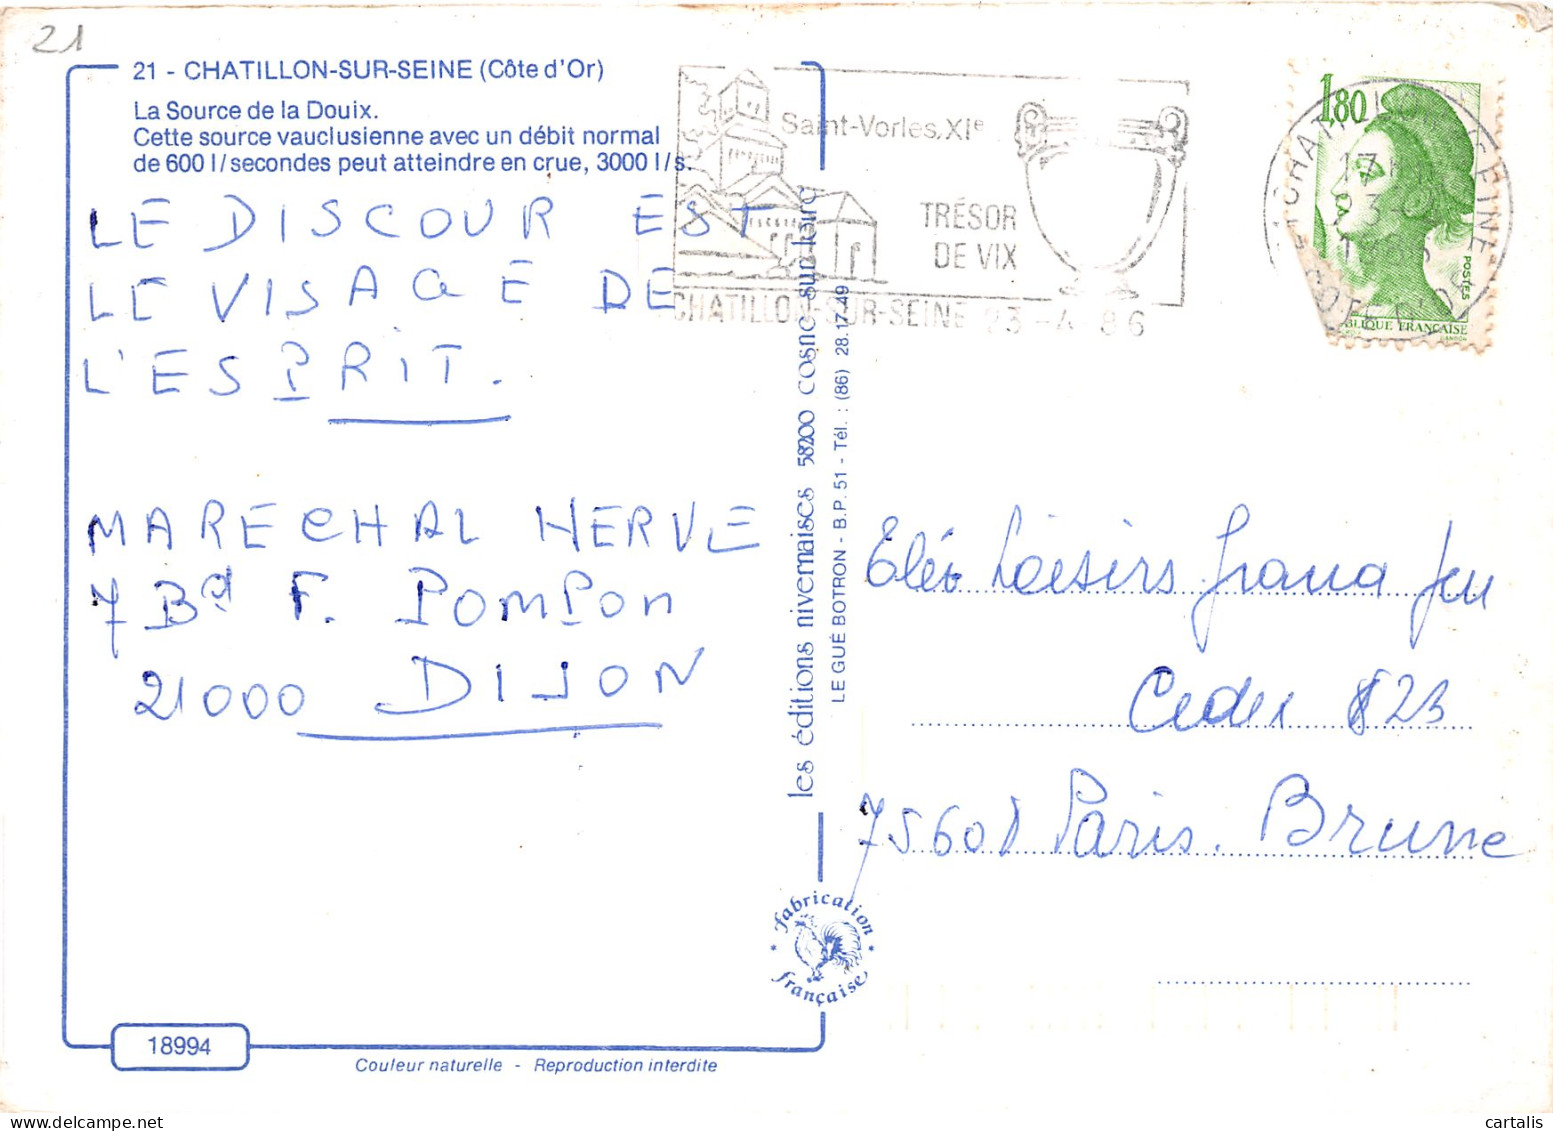 21
21 - CHATILLON-SUR-SEINE (Côte d'Or)
La Source de la Douix.
Cette source vauclusienne avec un débit normal
de 600 l/secondes peut atteindre en crue, 3000 l/s.
LE DISCOUR EST
LE VISAGE DE
L'ESPRIT.
MARECHAL HERVE
7 Bd F. POMPON
21000 DIJON
18994
Couleur naturelle - Reproduction interdite
les éditions nivernaises 58200 cosne sur loire
LE GUÉ BOTRON - B.P. 51 - Tél. : (86) 28.17.49
Fabrication
française
Saint-Vorles, XIe
TRÉSOR
DE VIX
CHATILLON-SUR-SEINE 23 -4 86
1,80
POSTES
BLIQUE FRANÇAISE
Télé Loisirs grand jeu
Cedex 823
75608 Paris. Brune
cartalis